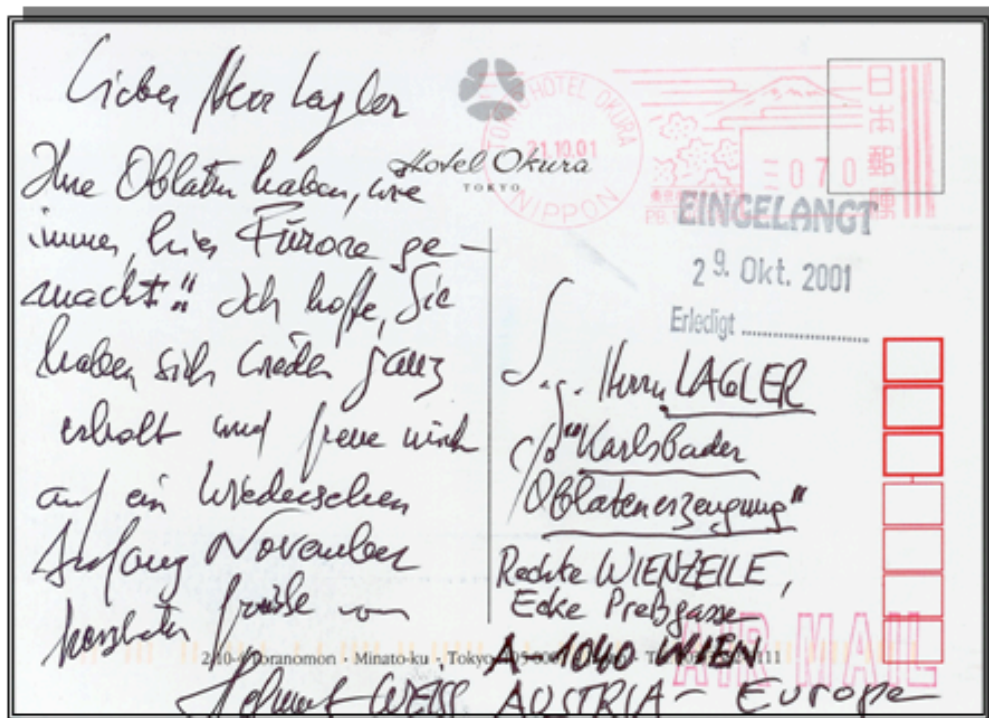 Lieber Herr Lagler
Ihre Oblaten haben, wie
immer, hier Furore ge-
macht!! Ich hoffe, Sie
haben sich wieder ganz
erholt und freue mich
auf ein Wiedersehen
Anfang November
Grüße von
Helmut WEISS
Hotel Okura
TOKYO
TOKYO HOTEL OKURA
21.10.01
NIPPON
070
日本郵便
EINGELANGT
29. Okt. 2001
Erledigt
S.g. Herrn LAGLER
c/o "Karlsbader
Oblatenerzeugung"
Rechte WIENZEILE,
Ecke Preßgasse
A 1040 WIEN
AUSTRIA - Europe
AIR MAIL
Toranomon · Minato-ku · Tokyo